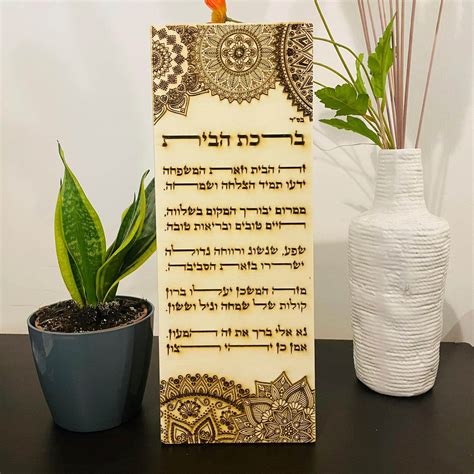 בס"ד
ברכת הבית
זה הבית וזאת המשפחה
ידעו תמיד הצלחה ושמחה.
ממרום יבורך המקום בשלווה,
חיים טובים ובריאות טובה.
שפע, ורווחה גדולה
ישרו בזאת הסביבה.
מזה המשכן יעלו ברון
קולות של שמחה וגיל וששון.
נא אלי ברך את זה המעון,
אמן כן יהי רצון